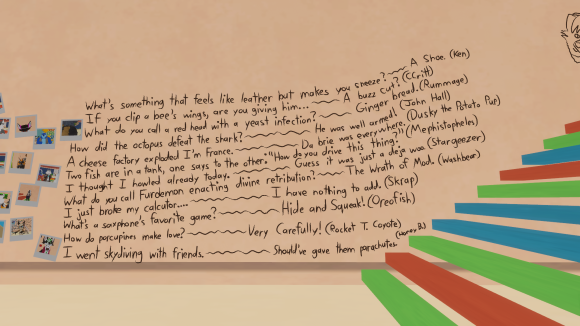 What's something that feels like leather but makes you sneeze? A Shoe. (Ken)
If you clip a bee's wings, are you giving him... A buzz cut? (CCritt)
What do you call a red head with a yeast infection? Ginger bread. (Rummage)
How did the octopus defeat the shark? He was well armed. (John Hall)
A cheese factory exploded I'm France. Da brie was everywhere. (Dusky the Potato Pup)
Two fish are in a tank, one says to the other. "How do you drive this thing?" (Mephistopheles)
I thought I howled already today. Guess it was just a deja woo. (Stargeezer)
What do you call Furdemon enacting divine retribution? The Wrath of Mod. (Washbear)
I just broke my calculator.... I have nothing to add. (Skrap)
What's a saxphone's favorite game? Hide and Squeak! (Oreofish)
How do porcupines make love? Very Carefully! (Rocket T. Coyote)
I went skydiving with friends. Should've gave them parachutes.